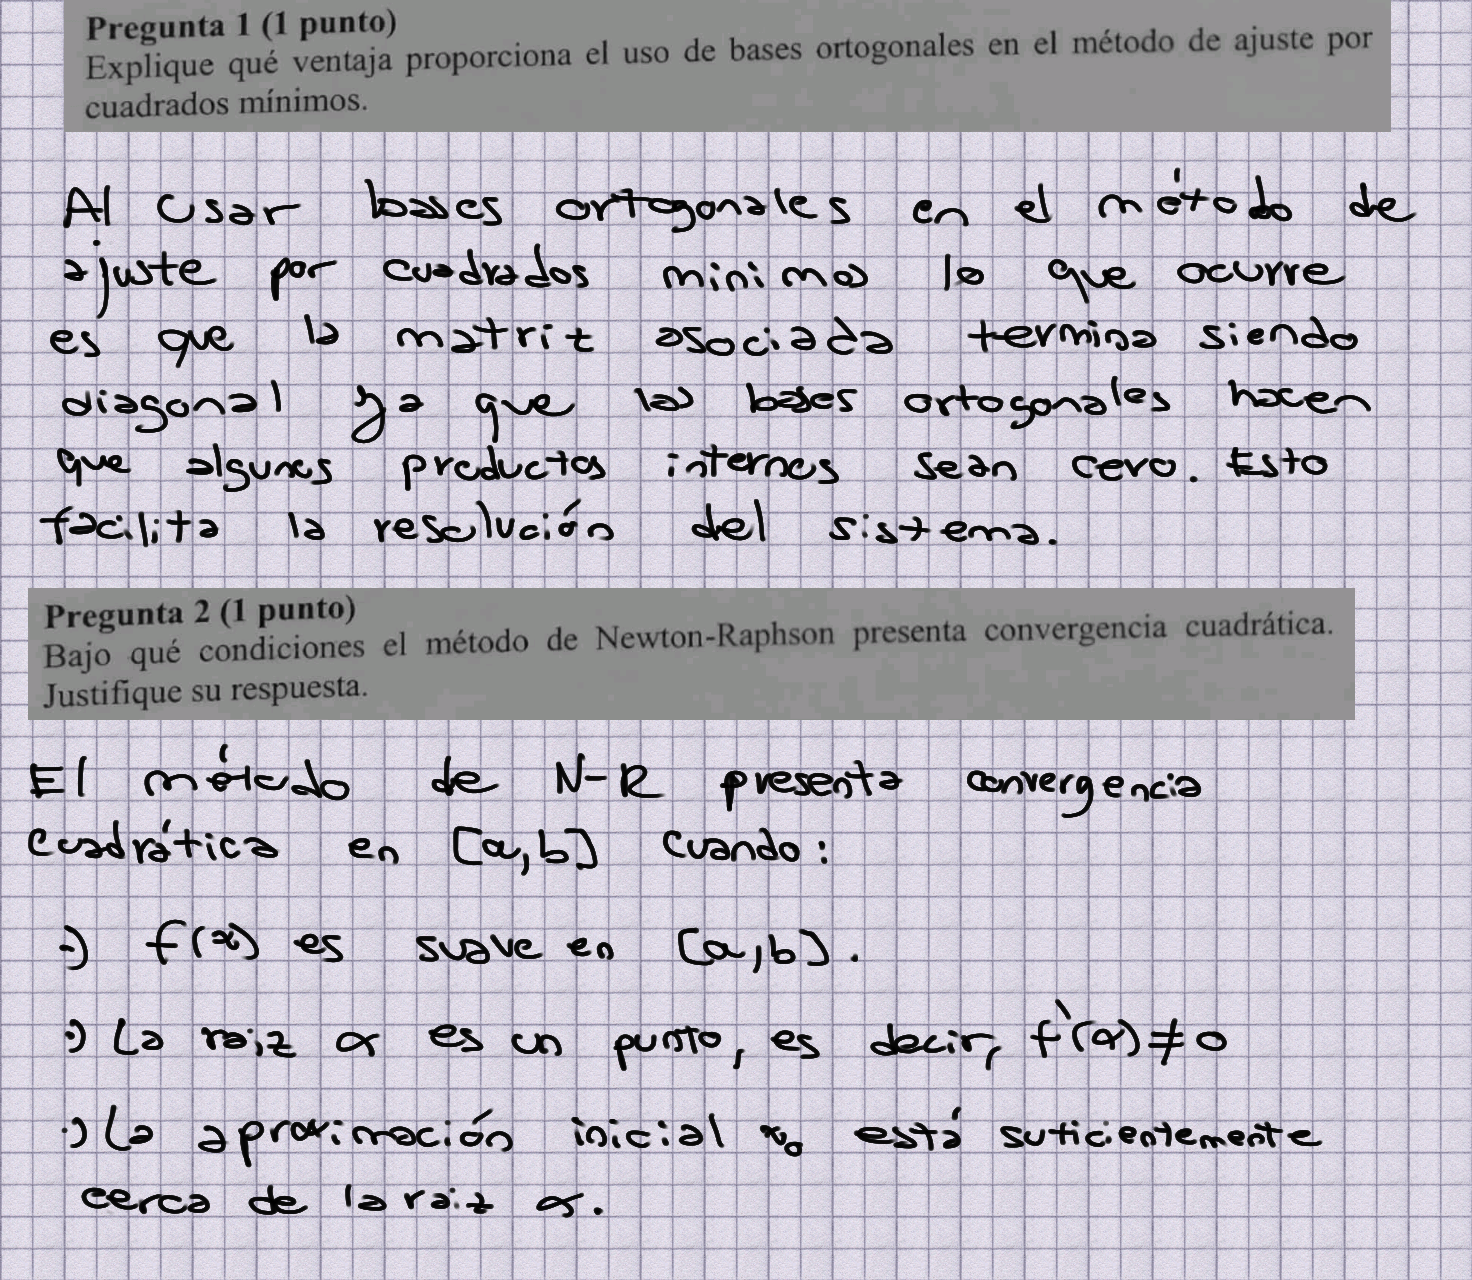 Pregunta 1 (1 punto)
Explique qué ventaja proporciona el uso de bases ortogonales en el método de ajuste por
cuadrados mínimos.
Al usar bases ortogonales en el método de
ajuste por cuadrados minimos lo que ocurre
es que la matriz asociada termina siendo
diagonal ya que las bases ortogonales hacen
que algunos productos internos sean cero. Esto
facilita la resolución del sistema.
Pregunta 2 (1 punto)
Bajo qué condiciones el método de Newton-Raphson presenta convergencia cuadrática.
Justifique su respuesta.
El método de N-R presenta convergencia
cuadrática en [a,b] cuando:
·) f(x) es suave en [a,b].
·) La raiz α es un punto, es decir, f'(α)≠0
·) La aproximación inicial x₀ está suficientemente
cerca de la raiz α.